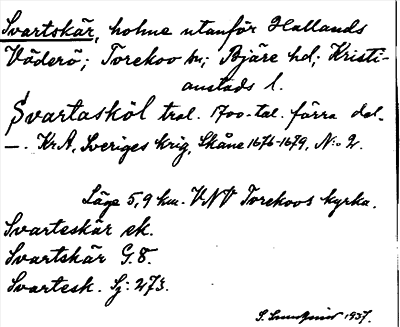 Svartskär, holme utanför Hallands
Väderö; Torekov sn; Bjäre hd; Kristi-
anstads l.
Svartasköl trol. 1700-tal. förra del.
—. KrA, Sveriges krig, Skåne 1676-1679, N:o 2.
Läge 5,9 km. VNV Torekovs kyrka.
Svarteskär ek.
Svartskär G.8.
Svartesk. Sj: 273.
S. 1937.